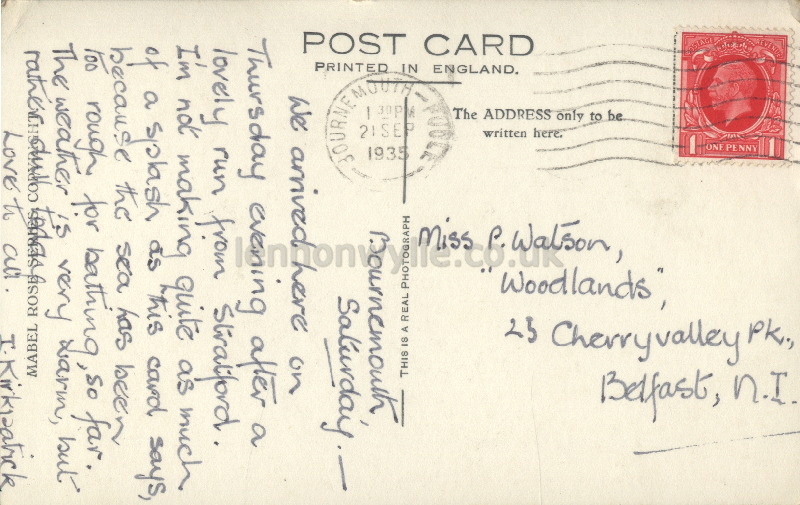 POST CARD
PRINTED IN ENGLAND.
The ADDRESS only to be
written here.
BOURNEMOUTH - POOLE
1 30 PM
21 SEP
1935
POSTAGE REVENUE
1 ONE PENNY 1
Bournemouth,
Saturday. —
We arrived here on
Thursday evening after a
lovely run from Stratford.
I'm not making quite as much
of a splash as this card says,
because the sea has been
too rough for bathing, so far.
The weather is very warm, but
rather dull today.
Love to all.
I. Kirkpatrick
MABEL ROSE SERIES COPYRIGHT
THIS IS A REAL PHOTOGRAPH
Miss P. Watson,
"Woodlands",
23 Cherryvalley Pk.,
Belfast, N.I.
lennonwylie.co.uk